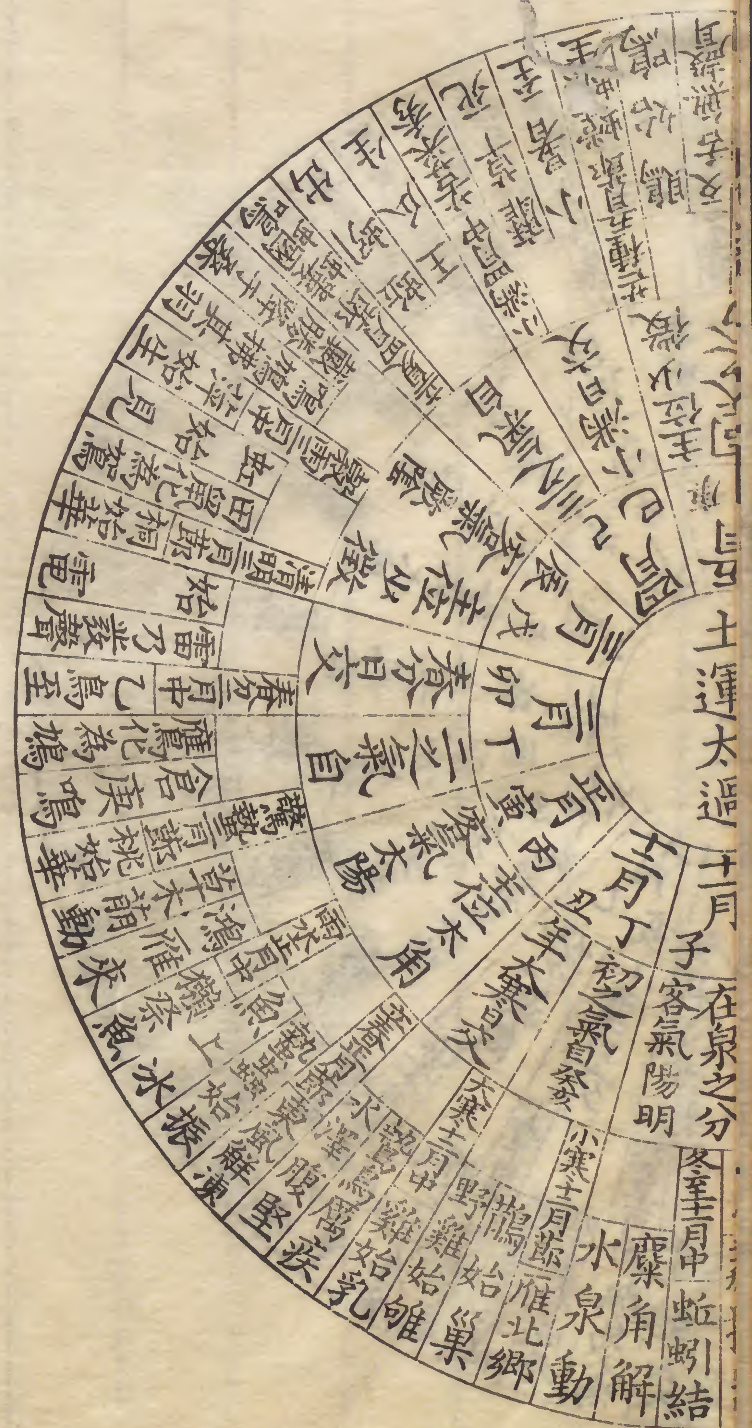 土運太過
十一月
子
在泉之分
客氣陽明
冬至十一月中
蚯蚓結
麋角解
水泉動
十二月
丁
丑
初之氣自癸亥
年大寒日交
小寒十二月節
雁北鄉
鵲始巢
野雞始雊
大寒十二月中
雞始乳
鷙鳥厲疾
水澤腹堅
正月
寅
丙
主位太角
客氣太陽
立春正月節
東風解凍
蟄蟲始振
魚上冰
雨水正月中
獺祭魚
鴻雁來
草木萌動
二月
卯
丁
二之氣自
春分日交
驚蟄二月節
桃始華
倉庚鳴
鷹化為鳩
春分二月中
乙鳥至
雷乃發聲
始電
三月
辰
戊
主位少徵
客氣厥陰
清明三月節
桐始華
田鼠化為鴽
虹始見
穀雨三月中
萍始生
鳴鳩拂其羽
戴勝降于桑
四月
巳
己
三之氣自
小滿日交
立夏四月節
螻蟈鳴
蚯蚓出
王瓜生
小滿四月中
苦菜秀
靡草死
小暑至
主位少徵
芒種五月節
螳螂生
鵙始鳴
反舌無聲